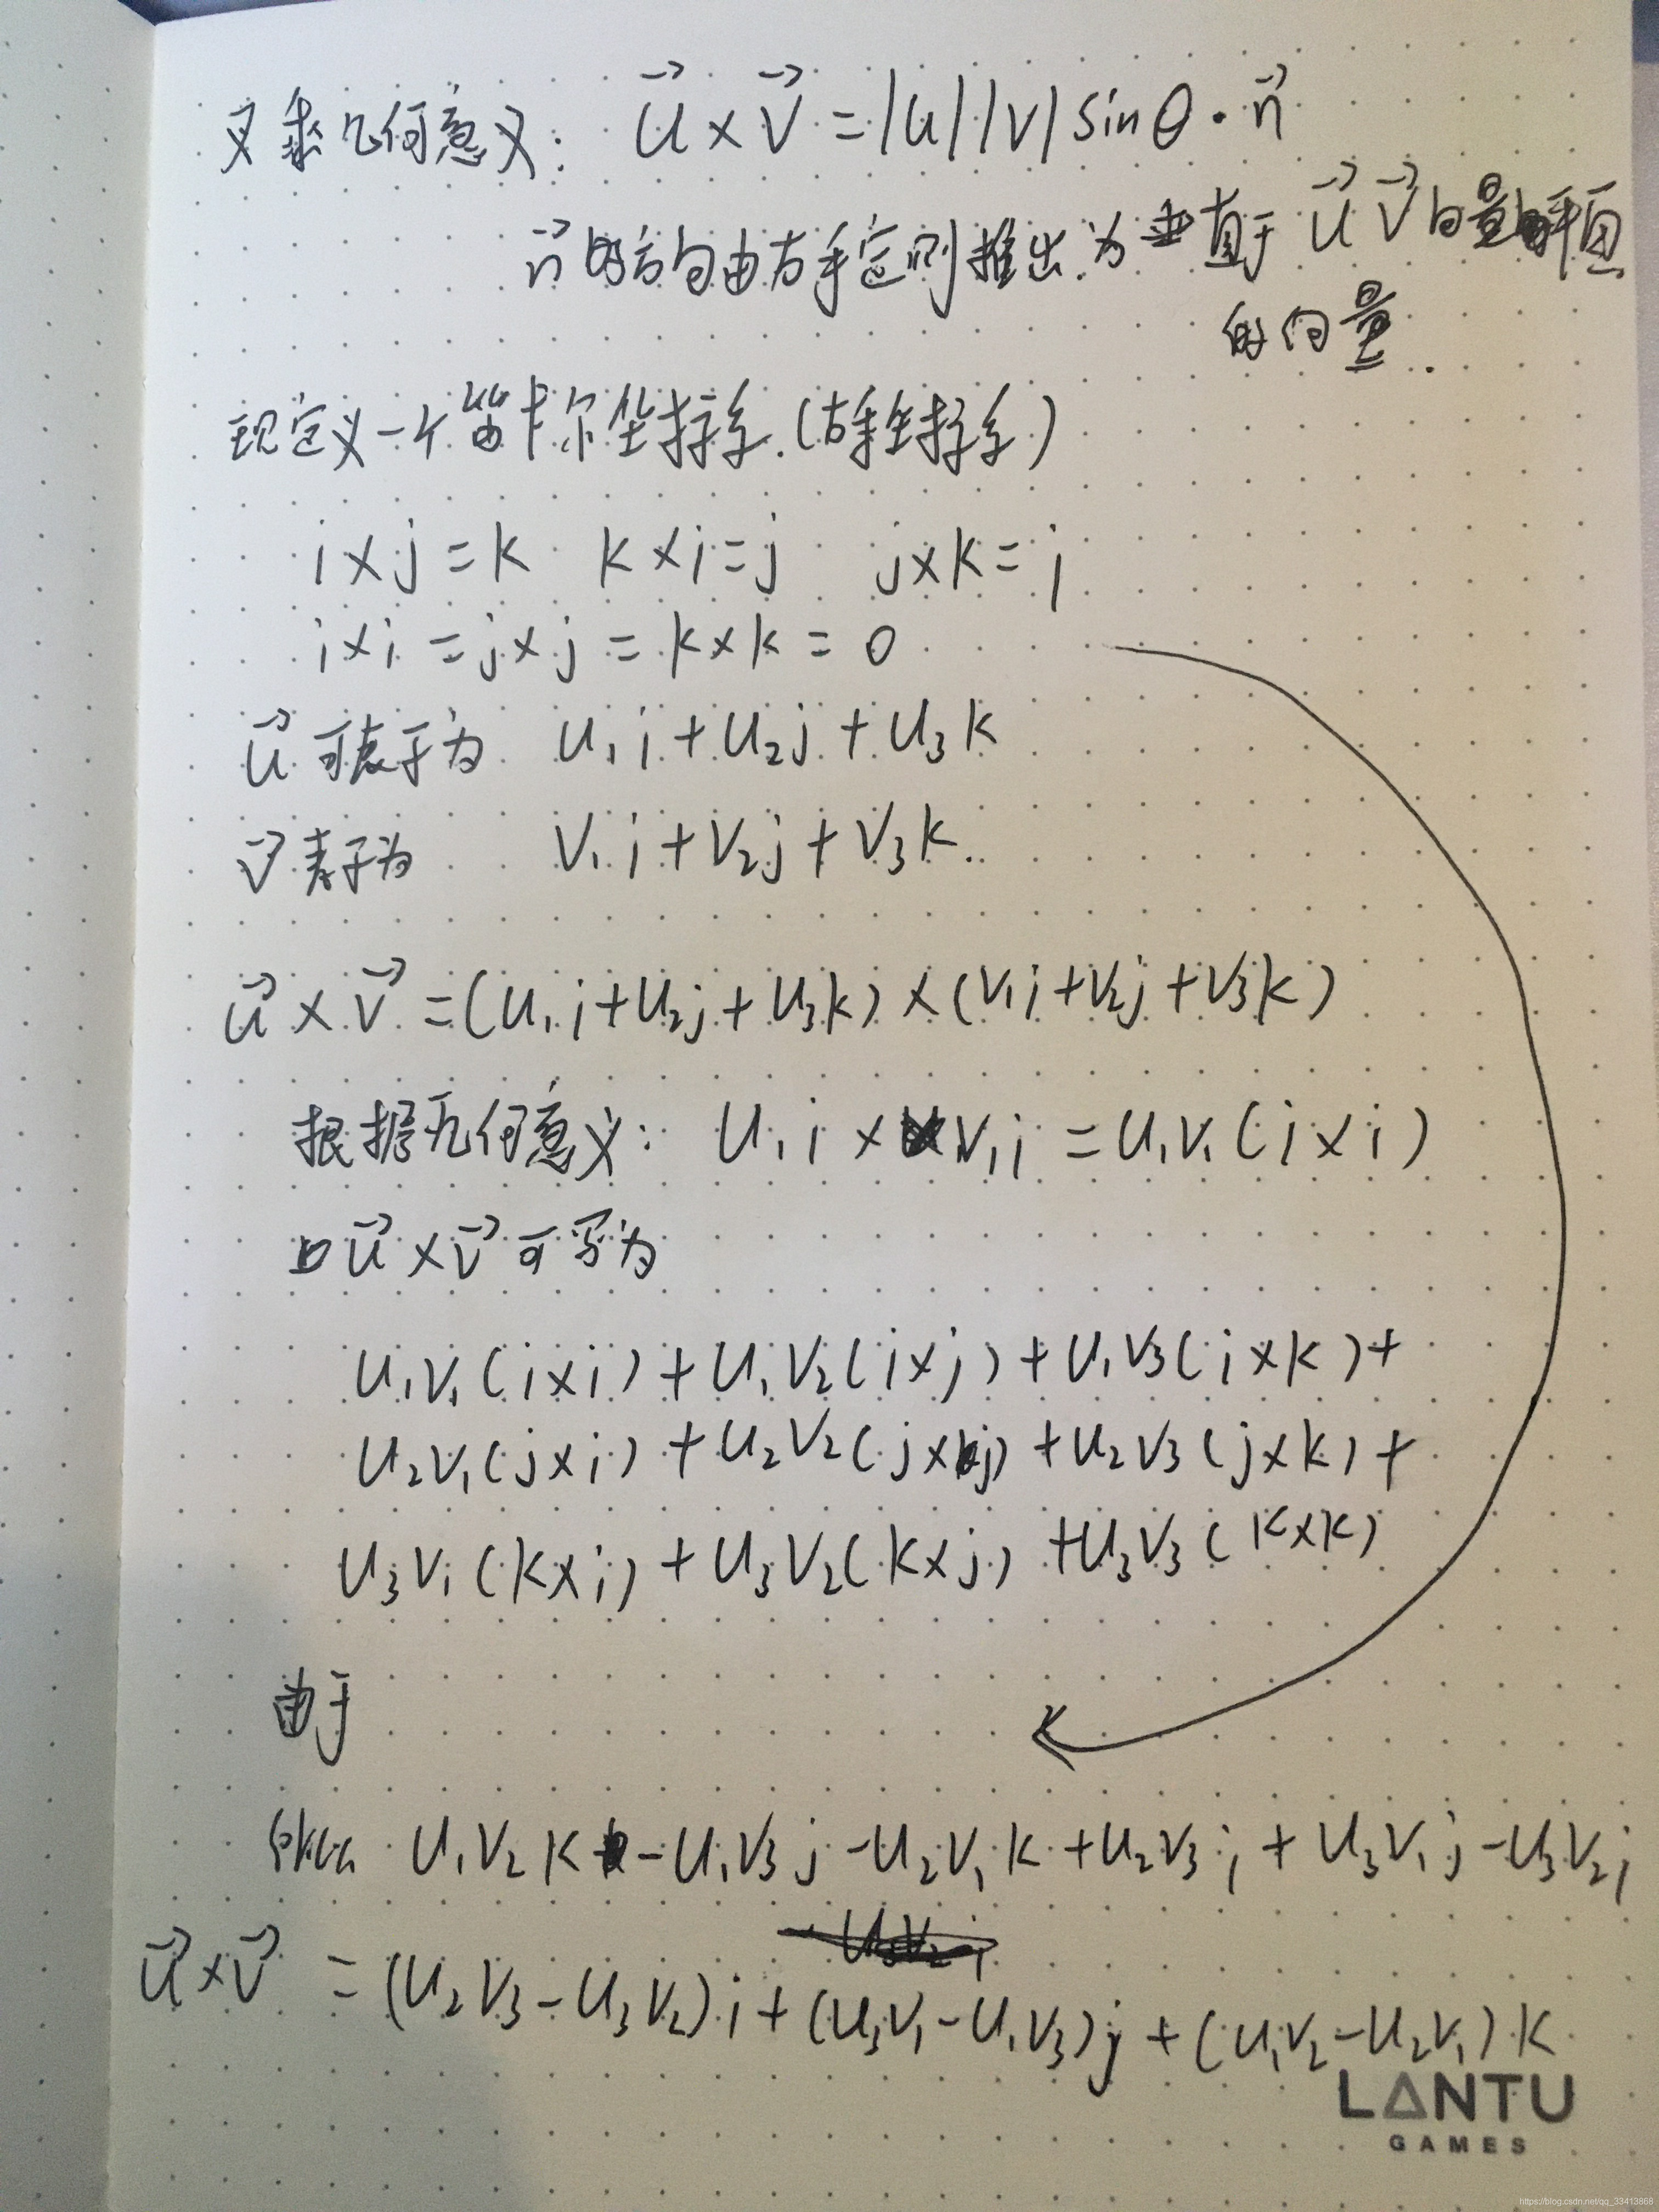 叉乘几何意义: u⃗ × v⃗ = |u||v| sinθ · n⃗
n⃗ 的方向由右手定则推出.为垂直于 u⃗ v⃗ 向量平面
的向量.
现定义一个笛卡尔坐标系.(右手坐标系)
i×j=k k×i=j j×k=i
i×i=j×j=k×k=0
u⃗ 可表示为 u₁i+u₂j+u₃k
v⃗ 表示为 v₁i+v₂j+v₃k.
u⃗ × v⃗ =(u₁i+u₂j+u₃k)×(v₁i+v₂j+v₃k)
根据几何意义: u₁i × v₁i = u₁v₁(i×i)
u⃗ × v⃗ 可写为
u₁v₁(i×i)+u₁v₂(i×j)+u₁v₃(i×k)+
u₂v₁(j×i)+u₂v₂(j×j)+u₂v₃(j×k)+
u₃v₁(k×i)+u₃v₂(k×j)+u₃v₃(k×k)
由于
所以 u₁v₂k-u₁v₃j-u₂v₁k+u₂v₃i+u₃v₁j-u₃v₂i
u⃗×v⃗ =(u₂v₃-u₃v₂)i+(u₃v₁-u₁v₃)j+(u₁v₂-u₂v₁)k
LANTU
GAMES
https://blog.csdn.net/qq_33413868